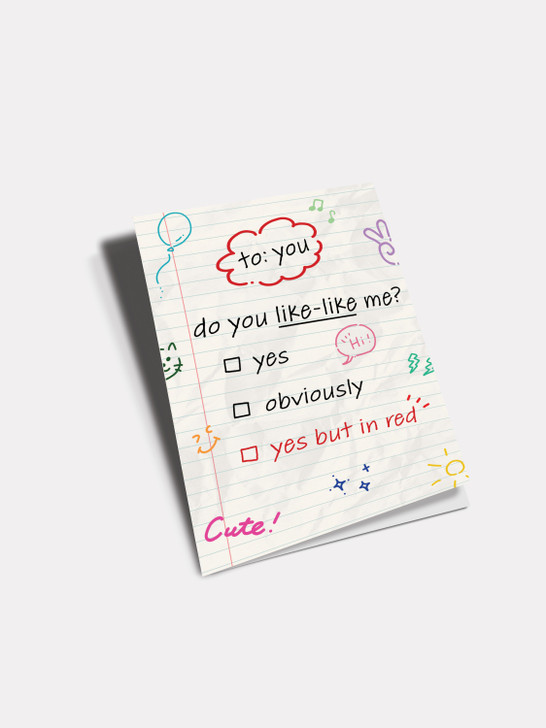 to: you
do you like-like me?
Hi!
yes
obviously
yes but in red
Cute!